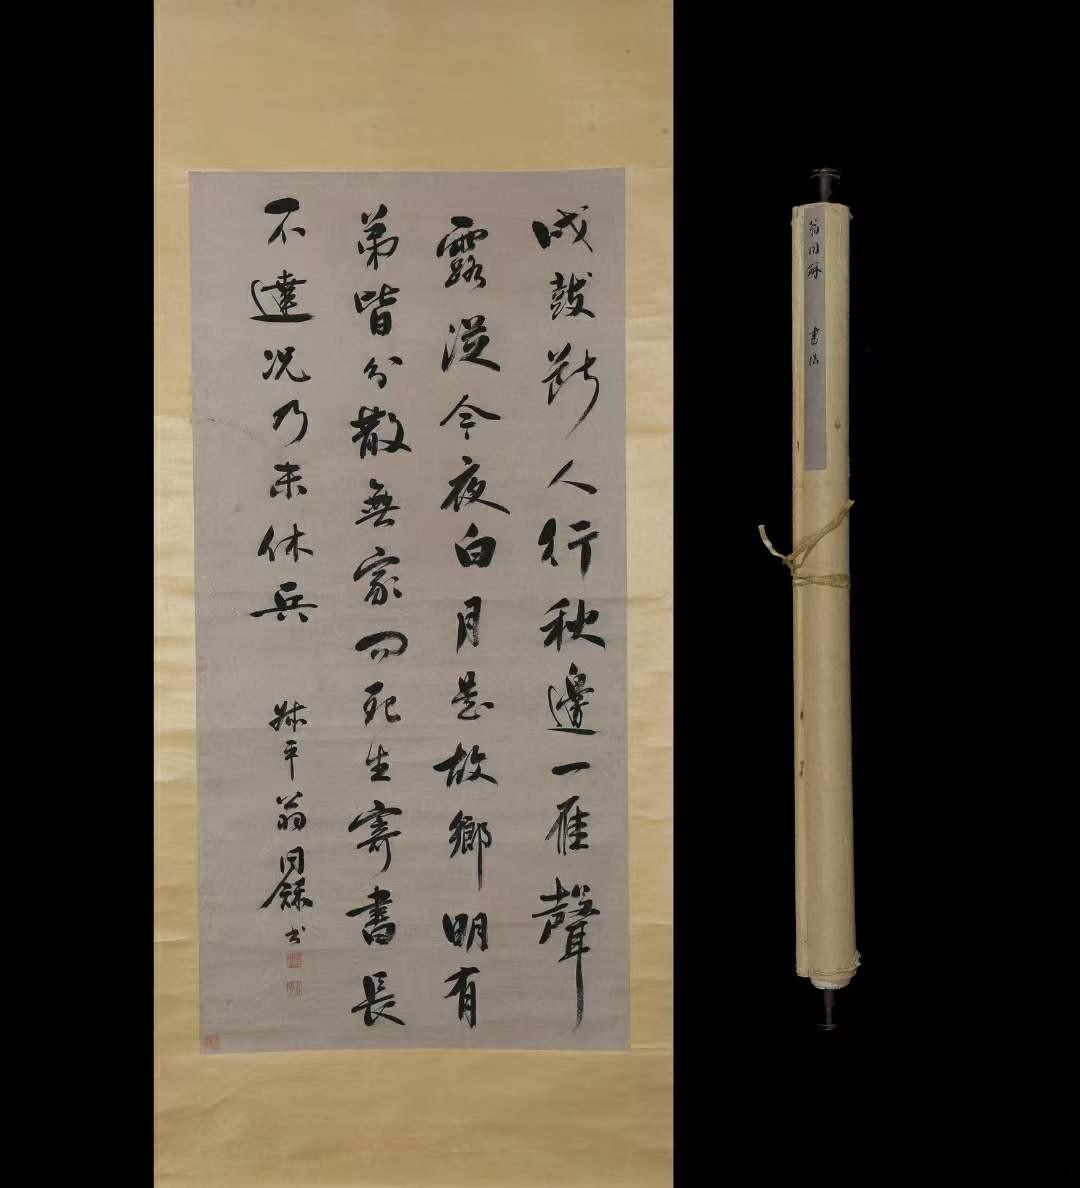 戍鼓斷人行秋邊一雁聲
露從今夜白月是故鄉明有
弟皆分散無家問死生寄書長
不達况乃未休兵
叔平翁同龢書
翁同龢 書法